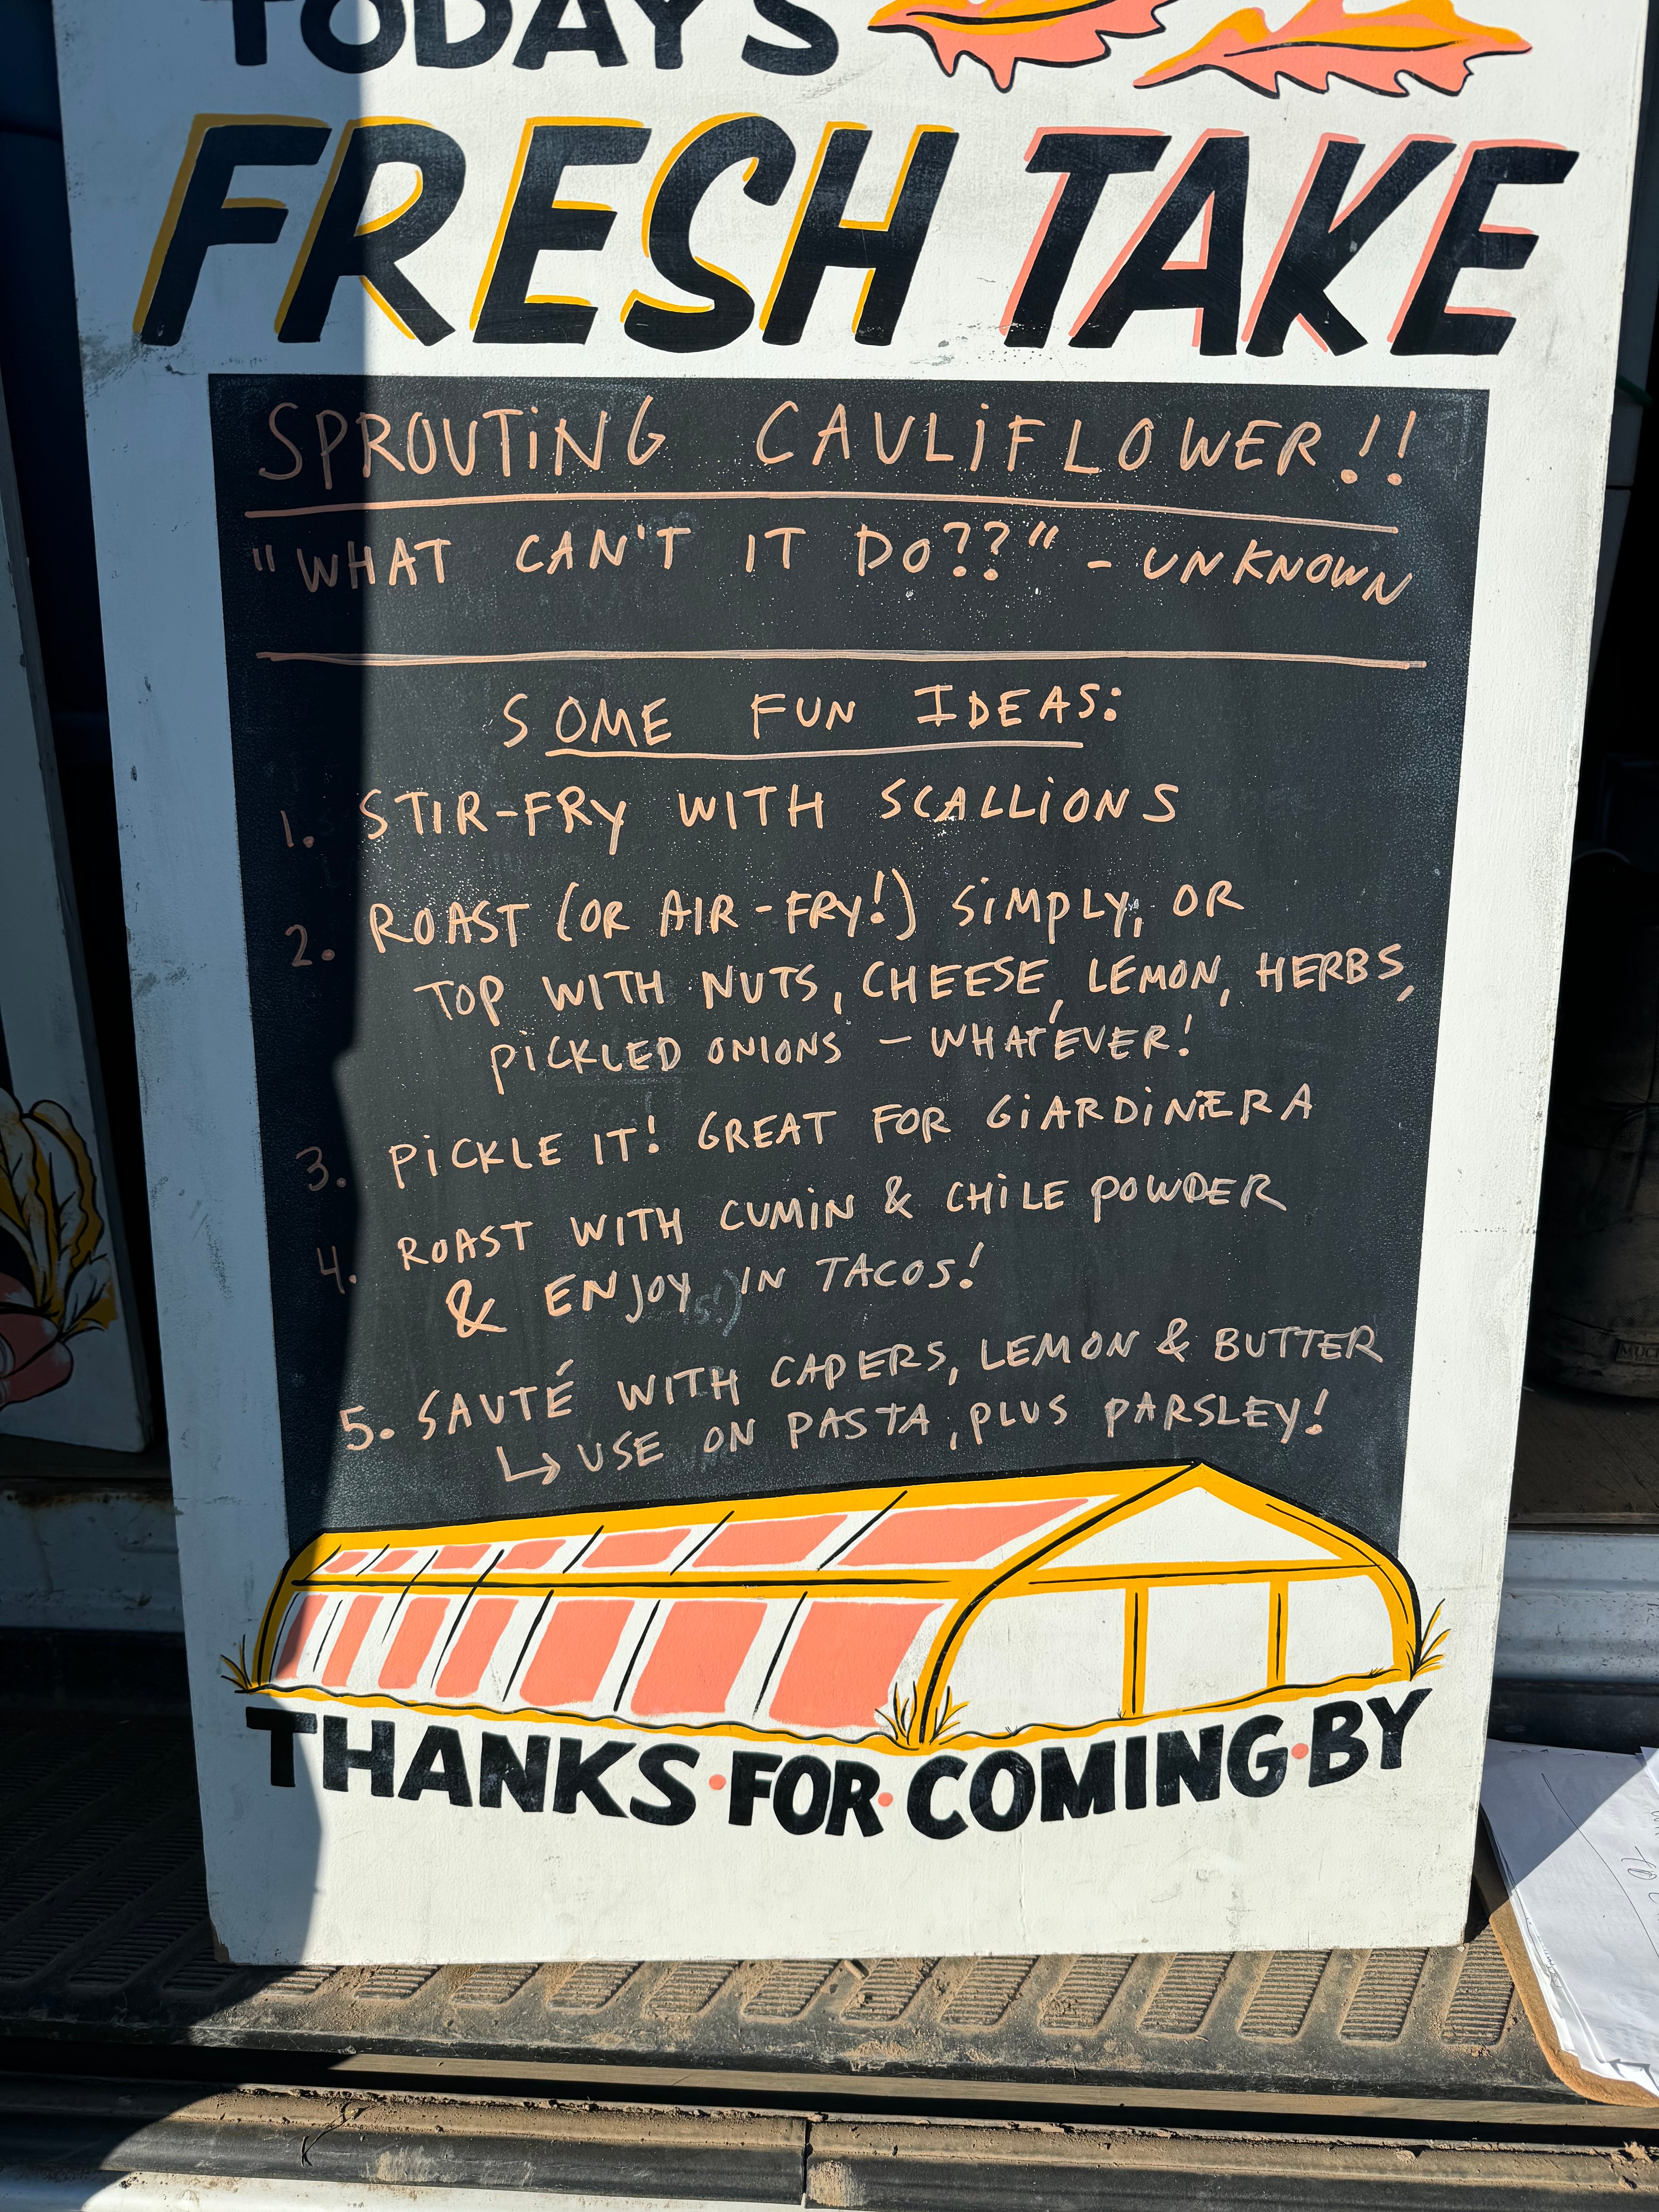 TODAY'S
FRESH TAKE
SPROUTING CAULIFLOWER!!
"WHAT CAN'T IT DO??" - UNKNOWN
SOME FUN IDEAS:
1. STIR-FRY WITH SCALLIONS
2. ROAST (OR AIR-FRY!) SIMPLY, OR
TOP WITH NUTS, CHEESE, LEMON, HERBS,
PICKLED ONIONS - WHATEVER!
3. PICKLE IT! GREAT FOR GIARDINIERA
4. ROAST WITH CUMIN & CHILE POWDER
& ENJOY IN TACOS!
5. SAUTÉ WITH CAPERS, LEMON & BUTTER
↳ USE ON PASTA, PLUS PARSLEY!
THANKS·FOR·COMING·BY